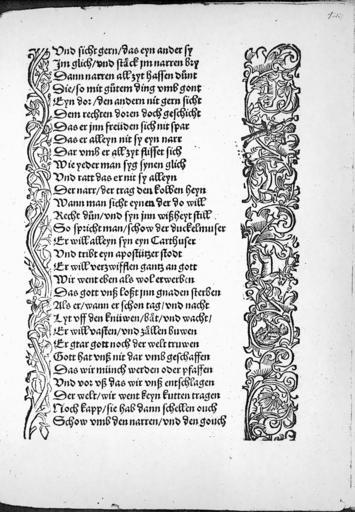 Vnd sicht gern/das eyn ander sy
Im glich/vnd stäck jm narren bry
Dann narren all zyt hassen dünt
Die/so mit gůtem ding vmb gont
Eyn dor/den andern nit gern sicht
Dem rechten doren doch geschicht
Das er jnn freüden sich nit spar
Das er alleyn nit sy eyn narr
Dar vmb er all zyt flisset sich
Wie yederman syg synen glich
Vnd tůtt das er nit sy alleyn
Der narr/der trag den kolben heyn
Wann man sicht eynen der do will
Recht důn/vnd syn jnn wißheyt still
So spricht man/schow der duckelmuser
Er will alleyn syn eyn Carthuser
Vnd tribt eyn apostützer stodt
Er will verzwifflen gantz an gott
Wir went eben als wol erwerben
Das gott vnß loßt jnn gnaden sterben
Als er/wann er schon tag/vnd nacht
Lyt vff den knüwen/bät/vnd wacht/
Er will vasten/vnd zällen buwen
Er gtar gott noch der welt truwen
Gott hat vnß nit dar vmb geschaffen
Das wir münch werden oder pfaffen
Vnd vor vß das wir vnß entschlagen
Der welt/wir went keyn kutten tragen
Noch kapp/sie hab dann schellen ouch
Schow vmb den narren/vnd den gouch